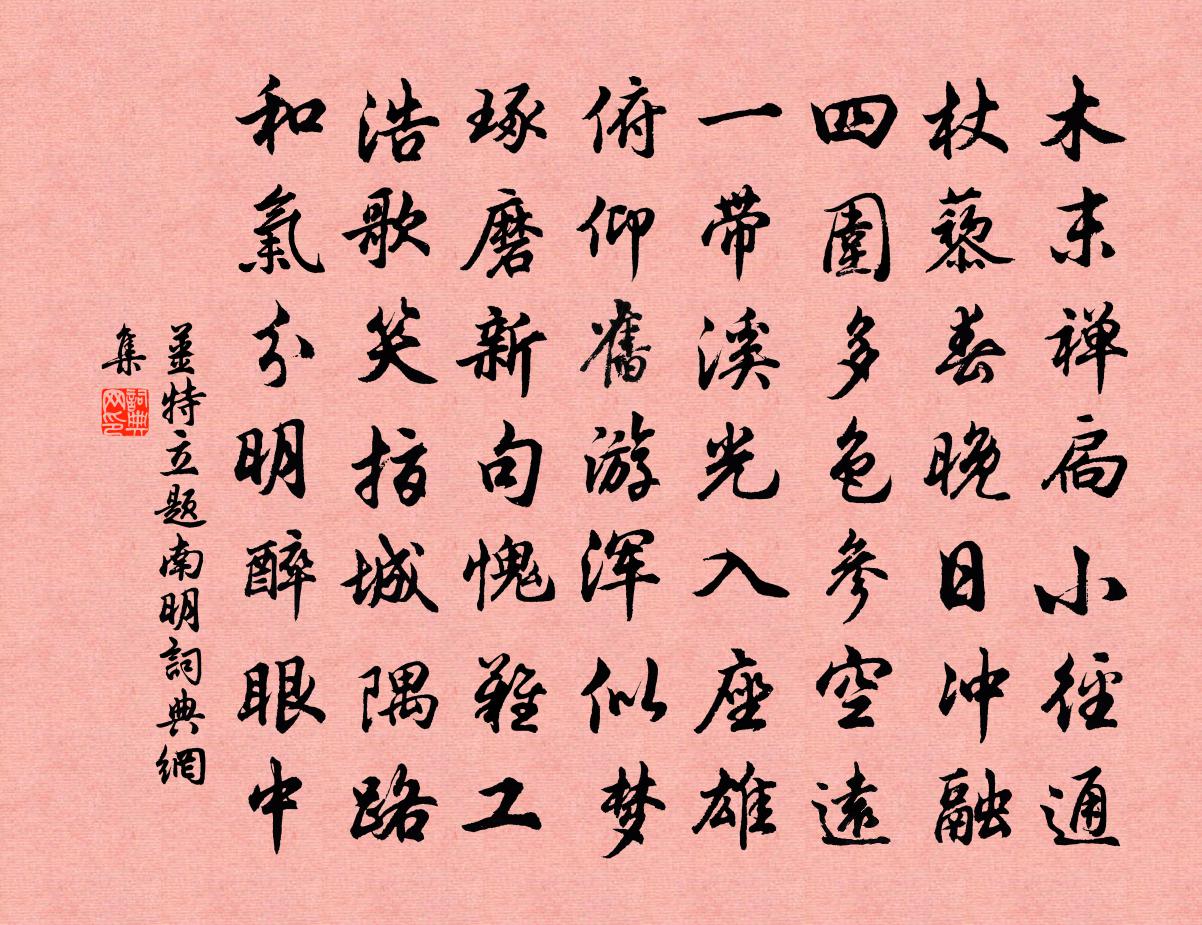 木末禅扃小径通
杖藜春晚日冲融
四圍多色參空遠
一带溪光入座雄
俯仰舊游浑似梦
琢磨新句愧難工
浩歌笑指城隅路
和氣分明醉眼中
姜特立题南明詞典網
集
詞典网印